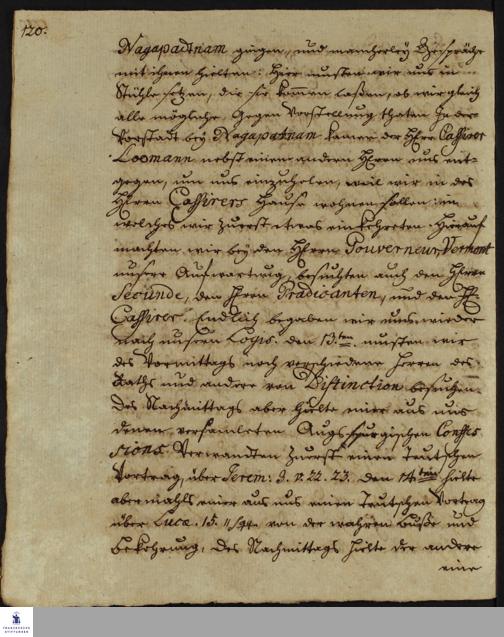 120.
Nagapadnam gingen, und mancherley Gespräche
mit ihnen hielten: Hier musten wir uns in
Stühle setzen, die sie kommen laßen, ob wir gleich
alle mögliche Gegen Vorstellung thaten. In der
Vorstadt bey Nagapatnam kamen der Herr Cassirer
Loomann nebst einem andern Herrn uns ent-
gegen, um uns einzuholen, weil wir in des
Herrn Cassirers Hause wohnen sollen: in
welches wir zuerst etwas einkehreten. Hierauf
machten wir bey dem Herrn Gouverneur Vermont
unsere Aufwartung, besuchten auch den Herrn
Secunde, den Herrn Prædicanten, und den H.
Cassirer. Endlich begaben wir uns wieder
nach unsern Logis. den 13.ten musten wir
des Vormittags noch verschiedene Herren des
Raths und andere von Distinction besuchen.
Des Nachmittags aber hielte einer aus uns
denen versamleten Augsburgischen Confes
sions Verwandten zuerst einen Teutschen
Vortrag über Jerem: 3. v. 22. 23. Den 14ten hielte
abermahls einer aus uns einen Teutschen Vortrag
über Luc. 15. von der wahren Buße und
Bekehrung, des Nachmittags hielte der andere
eine
FRANCKESCHE
STIFTUNGEN